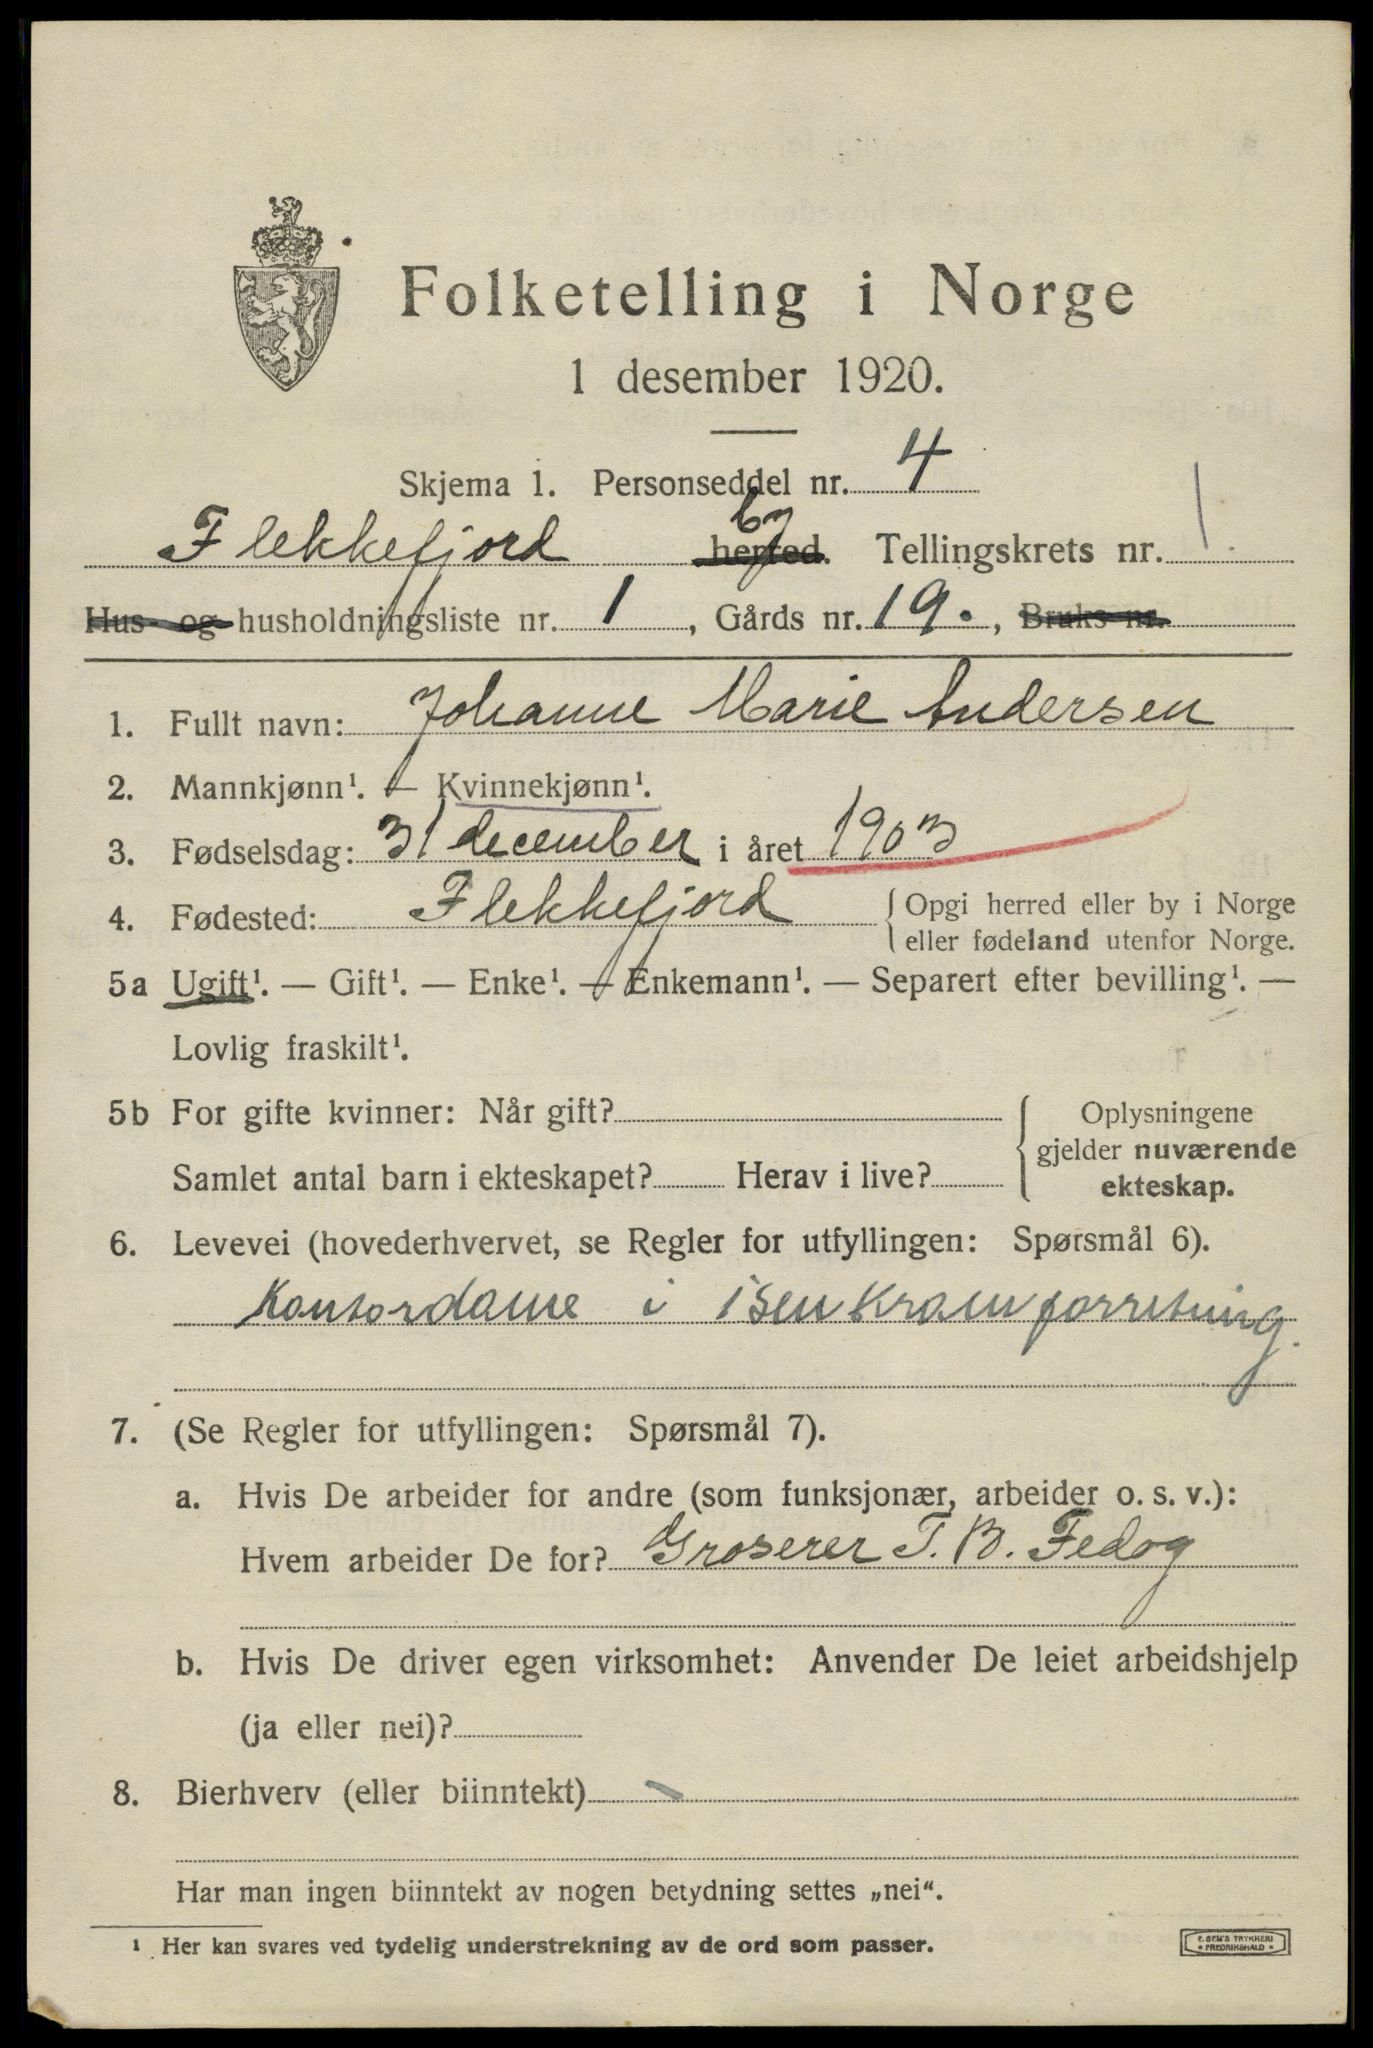 Folketelling i Norge
1 desember 1920.
Skjema 1. Personseddel nr. 4
Flekkefjord herred. by Tellingskrets nr. 1.
Hus- og husholdningsliste nr. 1, Gårds nr. 19., Bruks nr.
1. Fullt navn: Johanne Marie Andersen
2. Mannkjønn¹. — Kvinnekjønn¹.
3. Fødselsdag: 31 december i året 1903
4. Fødested: Flekkefjord {Opgi herred eller by i Norge
eller fødeland utenfor Norge.
5a Ugift¹. — Gift¹. — Enke¹. — Enkemann¹. — Separert efter bevilling¹. —
Lovlig fraskilt¹.
5b For gifte kvinner: Når gift? { Oplysningene
gjelder nuværende
Samlet antal barn i ekteskapet? Herav i live? ekteskap.
6. Levevei (hovederhvervet, se Regler for utfyllingen: Spørsmål 6).
Kontordame i isenkramforretning.
7. (Se Regler for utfyllingen: Spørsmål 7).
a. Hvis De arbeider for andre (som funksjonær, arbeider o. s. v.):
Hvem arbeider De for? Groserer T. B. Fedog
b. Hvis De driver egen virksomhet: Anvender De leiet arbeidshjelp
(ja eller nei)?
8. Bierhverv (eller biinntekt) -
Har man ingen biinntekt av nogen betydning settes „nei“.
¹ Her kan svares ved tydelig understrekning av de ord som passer.
E. SEM'S TRYKKERI
FREDRIKSHALD